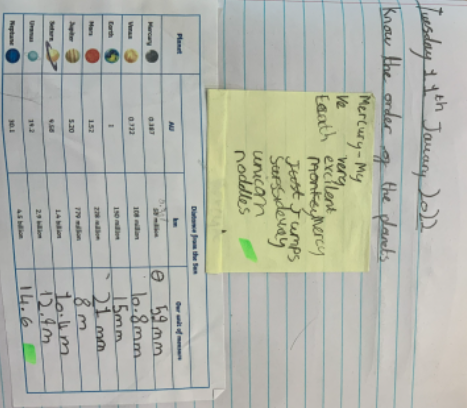 Tuesday 11th January 2022
Know the order of the planets
Mercury - My
Ve very
Earth excillent
monkey Mercy
Joost Jumps
unican
noddles
Distance from the Sun
Planet AU km Our unit of measure
Mercury 0.387 59mm
Venus 0.722 108 million 10.8mm
Earth 1 150 million 15mm
Mars 1.52 228 million 21mm
Jupiter 5.20 779 million 8m
Saturn 9.58 1.4 billion 10.4m
Uranus 19.2 2.9 billion 12.9m
Neptune 30.1 4.5 billion 14.6